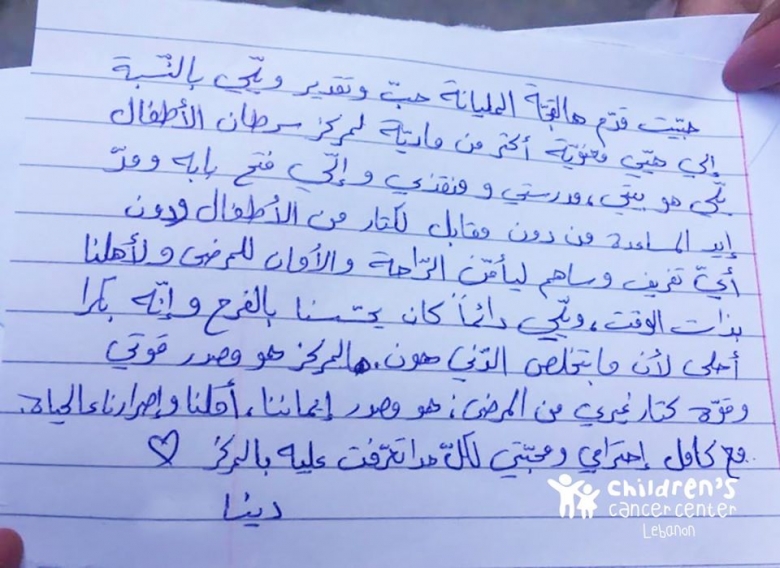 حبّيت قدّم هالقجّة المليانة حبّ وتقدير ويلّي بالنّسبة
إلي هيّي معنويّة أكتر من ماديّة لمركز سرطان الأطفال
يلّي هو بيتي، مدرستي و منقذي و إلّي فتح بابه ومدّ
إيد المساعدة من دون مقابل لكتار من الأطفال ودون
أيّ تفريق وساهم ليأمّن الرّاحة والأمان للمرضى ولأهلنا
بذات الوقت، ويلّي دائماً كان يحسّسنا بالفرح وإنّه بكرا
أحلى لأن ما بتخلص الدّني هون. هالمركز هو مصدر قوتي
وقوّة كتار غيري من المرضى؛ هو مصدر إيماننا، أملنا وإصرارنا عالحياة.
مع كامل إحترامي ومحبّتي لكلّ حدا تعرّفت عليه بالمركز ♡
دينا
children's
cancer center
Lebanon